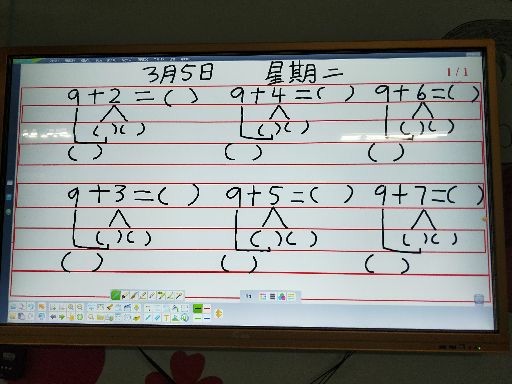 3月5日 星期二
1/1
9+2=( ) 9+4=( ) 9+6=( )
( )( ) ( )( ) ( )( )
( ) ( ) ( )
9+3=( ) 9+5=( ) 9+7=( )
( )( ) ( )( ) ( )( )
( ) ( ) ( )